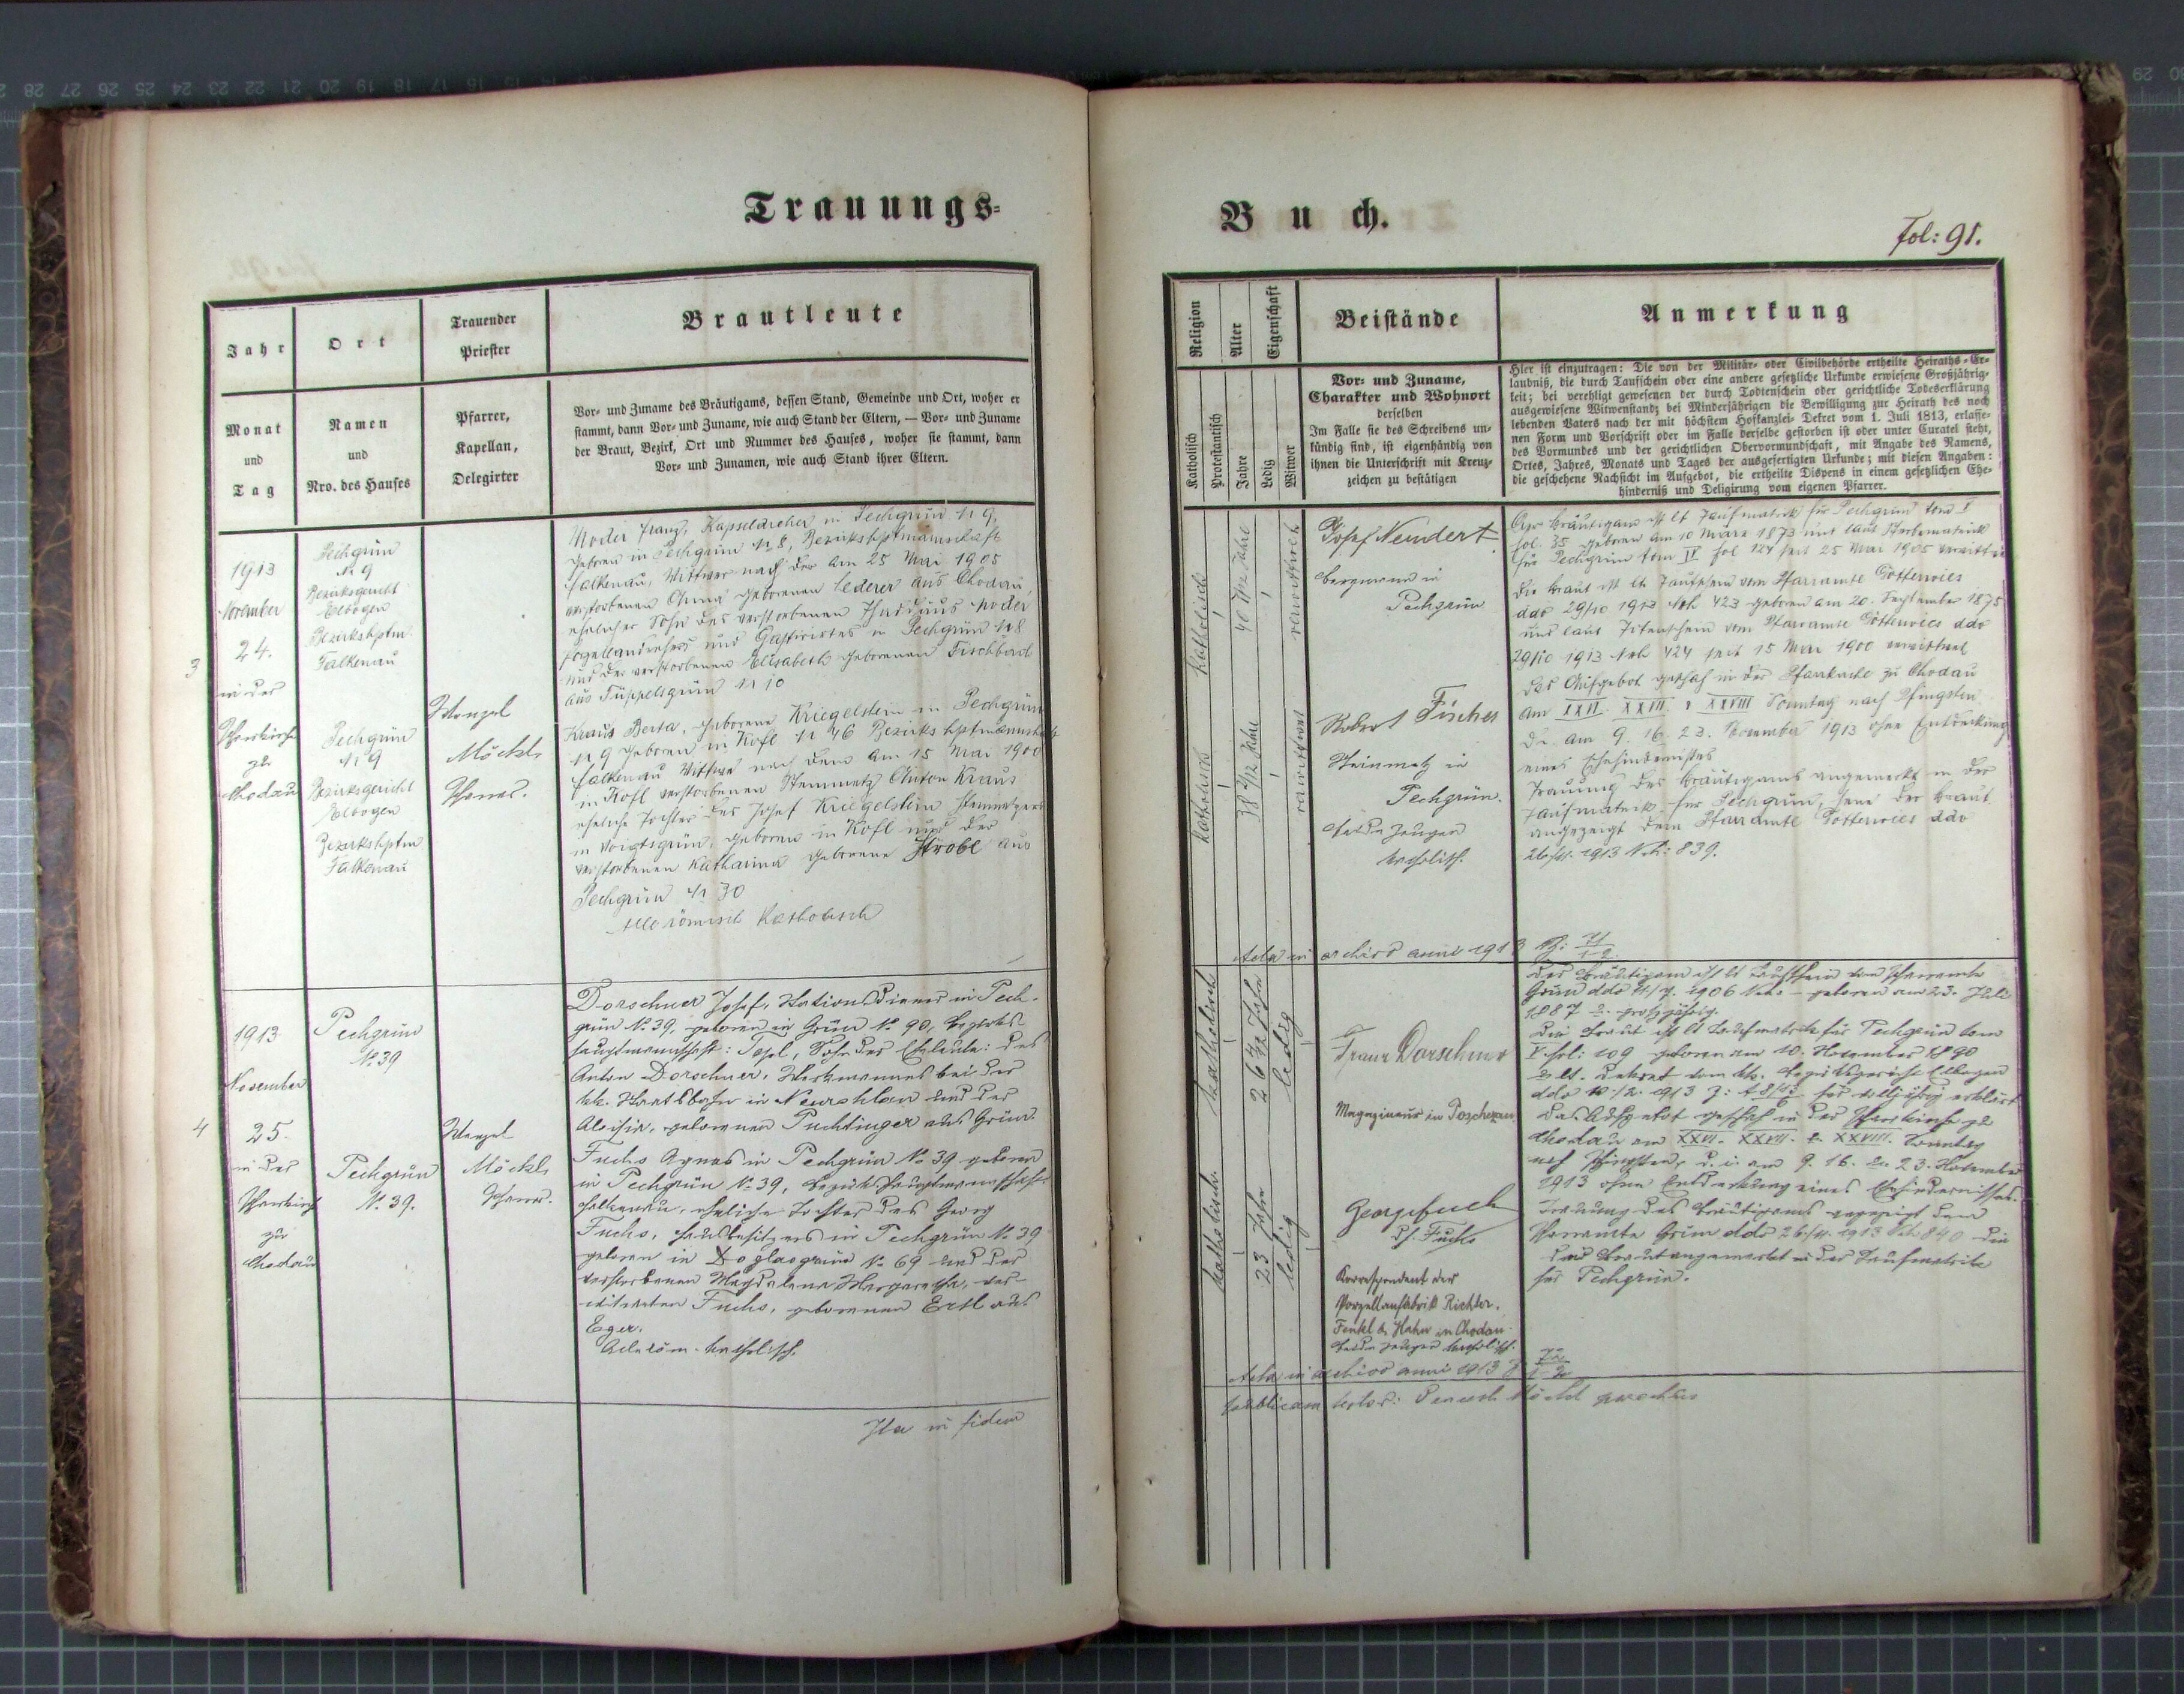 Trauungs-
Jahr
Monat
und
Tag
Ort
Namen
und
Nro. des Hauses
Trauender
Priester
Pfarrer,
Kapellan,
Delegirter
Brautleute
Vor- und Zuname des Bräutigams, dessen Stand, Gemeinde und Ort, woher er
stammt, dann Vor- und Zuname, wie auch Stand der Eltern, — Vor- und Zuname
der Braut, Bezirk, Ort und Nummer des Hauses, woher sie stammt, dann
Vor- und Zunamen, wie auch Stand ihrer Eltern.
3
1913
November
24.
in der
Pfarrkirche
zu
Chodau
Pechgrün
N 9
Bezirksgericht
Elbogen
Bezirkshptm.
Falkenau
Pechgrün
N 9
Bezirksgericht
Elbogen
Bezirkshptm.
Falkenau
Wenzel
Möckl,
Pfarrer.
Franz, Kapseldreher in Pechgrün N 9,
geboren in Pechgrün N 8, Bezirkshptmannschaft
Falkenau, Wittwer nach der am 25 Mai 1905
verstorbenen Anna geborenen Lederer aus Chodau,
ehelicher Sohn des verstorbenen Thaddäus
Porzellandrehers und Gastwirtes in Pechgrün N 8
und der verstorbenen Elisabeth geborenen Fischbach
aus Tüppelsgrün N 10
Kraus Berta, geborene Kriegelstein in Pechgrün
N 9 geboren in Kofl N 46 Bezirkshptmannschaft
Falkenau Wittwe nach dem am 15 Mai 1900
in Kofl verstorbenen Steinmetz Anton Kraus
eheliche Tochter des Josef Kriegelstein
in Voigtsgrün, geboren in Kofl und der
verstorbenen Katharina geborene Strobl aus
Pechgrün N 30
Alle römisch katholisch
4
1913
November
25.
in der
Pfarrkirche
zu
Chodau
Pechgrün
No 39
Pechgrün
N. 39.
Wenzel
Möckl,
Pfarrer.
Dorschner Josef, Stationsdiener in Pech-
grün No 39, geboren in Grün No 90, Bezirks-
hauptmannschaft: Tepl, Sohn der Eheleute: des
Anton Dorschner, Werkmannes bei der
kk. Staatsbahn in Neurohlau und der
Aloisia, geborenen Puchtinger aus Grün.
Fuchs Agnes in Pechgrün No 39 geboren
in Pechgrün No 39, Bezirkshauptmannschaft
Falkenau, eheliche Tochter des Georg
Fuchs, Hausbesitzers in Pechgrün No 39
geboren in Doglasgrün No 69 und der
verstorbenen Magdalena Margaretha, ver-
witweten Fuchs, geborenen Ertl aus
Eger.
Alle röm. katholisch.
Ita in fidem
Buch.
Fol: 91.
Religion
Katholisch
Protestantisch
Alter
Jahre
Eigenschaft
Ledig
Witwer
Beistände
Vor- und Zuname,
Charakter und Wohnort
derselben
Im Falle sie des Schreibens un-
kündig sind, ist eigenhändig von
ihnen die Unterschrift mit Kreuz-
zeichen zu bestätigen
Anmerkung
Hier ist einzutragen: Die von der Militär- oder Civilbehörde ertheilte Heiraths-Er-
laubniß, die durch Taufschein oder eine andere gesetzliche Urkunde erwiesene Großjährig-
keit; bei verehligt gewesenen der durch Todtenschein oder gerichtliche Todeserklärung
ausgewiesene Witwenstand; bei Minderjährigen die Bewilligung zur Heirath des noch
lebenden Vaters nach der mit höchstem Hofkanzlei-Dekret vom 1. Juli 1813, erlasse-
nen Form und Vorschrift oder im Falle derselbe gestorben ist oder unter Curatel steht,
des Vormundes und der gerichtlichen Obervormundschaft, mit Angabe des Namens,
Ortes, Jahres, Monats und Tages der ausgefertigten Urkunde; mit diesen Angaben:
die geschehene Nachsicht im Aufgebot, die ertheilte Dispens in einem gesetzlichen Ehe-
hinderniß und Deligirung vom eigenen Pfarrer.
katholisch
verwittwet
katholisch
38 2/12 Jahre
verwittwet
Josef Neudert
Bergmann in
Pechgrün
Robert Fischer
Steinmetz in
Pechgrün.
beide Zeugen
katholisch.
Der Bräutigam ist lt Taufmatrik für Pechgrün tom I
fol. 35 geboren am 10 März 1873 und laut Sterbematrik
für Pechgrün tom IV fol 124 seit 25 Mai 1905
Die Braut ist lt Taufschein vom Pfarramte Gottenwies
ddo 29/10 1913 Neh 423 geboren am 20. September 1875
und laut Totenschein vom Pfarramte Gottenwies ddo
29/10 1913 Neh 424 seit 15 Mai 1900 verwittwet
Das Aufgebot geschah in der Pfarrkirche zu Chodau
am XXVI XXVII u XXVIII Sonntag nach Pfingsten
d.i. am 9. 16. 23. November 1913 ohne Entdeckung
eines Ehehindernisses
Trauung des Bräutigams angemerkt in der
Taufmatrik für Pechgrün, jene der Braut
angezeigt dem Pfarramte Gottenwies ddo
26/11. 1913 Neh: 839.
Acta in archivo anni 1913
katholisch
ledig
katholisch
23 Jahre
ledig
Franz Dorschner
Magazineur in Poschezau
Georg Fuchs
Fuchs
Korrespondent der
Porzellanfabrik Richter,
Fenkl & Hahn in Chodau
beide Zeugen katholisch.
Der Bräutigam ist lt Taufschein vom Pfarramte
Grün ddo 1906 geboren am 23. Juli
1887 großjährig.
Die Braut ist lt Taufmatrik für Pechgrün tom
V fol: 109 geboren am 10. November 1890
lt. Dekret vom kk. Bezirksgericht Elbogen
1913 für volljährig erklärt
Das Aufgebot geschah in der Pfarrkirche zu
Chodau am XXVI. XXVII. u. XXVIII. Sonntag
nach Pfingsten, d. i. am 9. 16. u. 23. November
1913 ohne Entdeckung eines Ehehindernisses.
Trauung des Bräutigams angezeigt dem
Pfarramte Grün ddo 26/11. 1913 Neh 840 die
der Braut angemerkt in der Taufmatrik
für Pechgrün.
Acta in archivo anni 1913
Möckl parochus